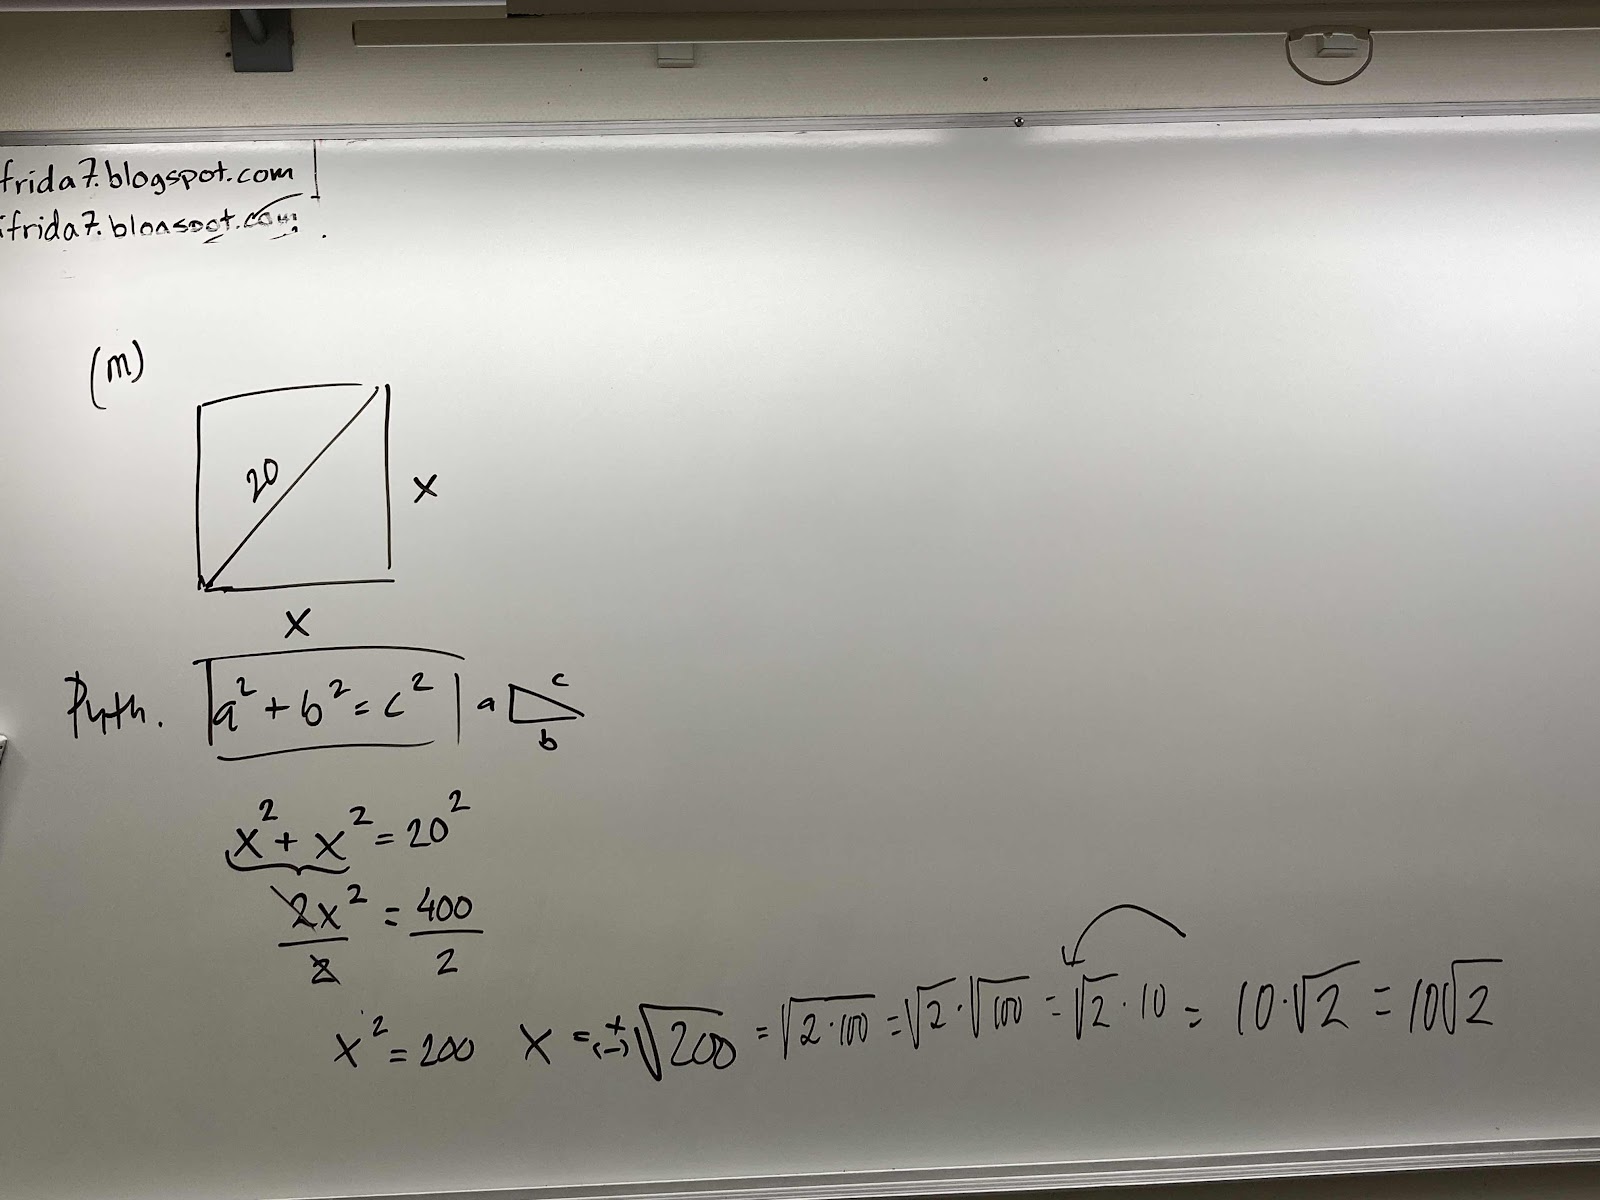 frida7.blogspot.com
ifrida7.blogspot.com
(m)
20
x
x
Pyth. a² + b² = c² a c b
x² + x² = 20²
2x²/2 = 400/2
x² = 200 x = ⁺₍₋₎√200 = √2·100 = √2 · √100 = √2 · 10 = 10·√2 = 10√2